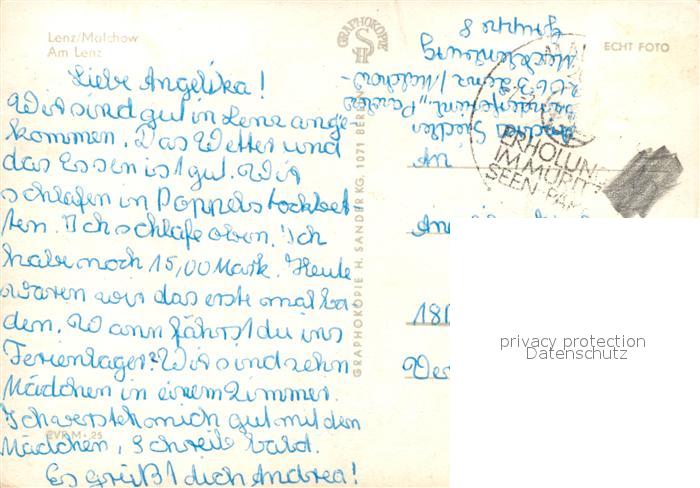 Lenz/Malchow
Am Lenz
GRAPHOKOPIE
SH
ECHT FOTO
Liebe Angelika!
Wir sind gut in Lenz ange-
kommen. Das Wetter und
das Essen ist gut. Wir
schlafen in Doppelstockbet
ten. Ich schlafe oben. Ich
habe noch 15,00 Mark. Heute
waren wir das erste mal ba-
den. Wann fährst du ins
Ferienlager? Wir sind zehn
Mädchen in einem Zimmer.
Ich verstehe mich gut mit den
Mädchen, Schreibe bald.
Es grüßt dich Andrea!
EVP M -,25
GRAPHOKOPIE H. SANDER KG, 1071 BERLIN
Andrea Siedler
2063 Lenz/Malchow
Mecklenburg
Gruppe 8
ERHOLUN
IM MÜRITZ
SEEN-PAR
An
181
privacy protection
Datenschutz